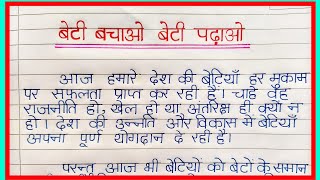 बेटी बचाओ बेटी पढ़ाओ
आज हमारे देश की बेटियाँ हर मुकाम
पर सफलता प्राप्त कर रही है। चाहे वह
राजनीति हो, खेल हो या अंतरिक्ष ही क्यों न
हो। देश की उन्नति और विकास में बेटियाँ
अपना पूर्ण योगदान दे रही है।
परन्तु आज भी बेटियों को बेटों के समान